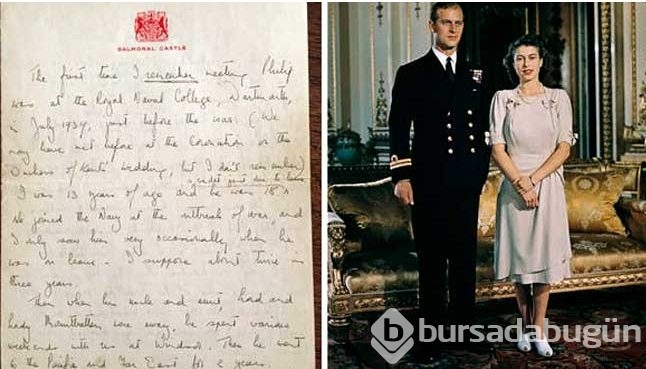 BALMORAL CASTLE
The first time I remember meeting Philip
was at the Royal Naval College, Dartmouth,
in July 1939, just before the war. (We
may have met before at the Coronation or the
Duchess of Kent's wedding, but I don't remember)
I was 13 years of age and he was 18
He joined the Navy at the outbreak of war, and
I only saw him very occasionally when he
was on leave - I suppose about twice in
three years.
Then when his uncle and aunt, Lord and
Lady Mountbatten were away, he spent various
weekends with us at Windsor. Then he went
to the Pacific and Far East for 2 years.
b bursadabugün